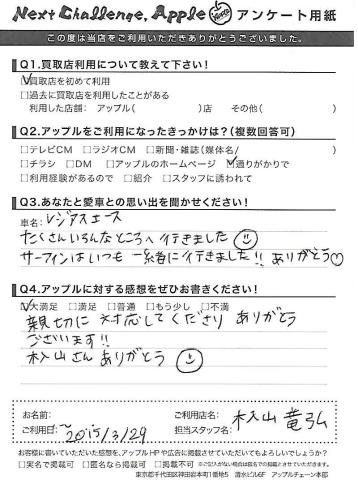 Next Challenge, Apple アンケート用紙
この度は当店をご利用いただきありがとうございました。
Q1.買取店利用について教えて下さい!
☑買取店を初めて利用
□過去に買取店を利用したことがある
利用した店舗: アップル( )店 その他( )
Q2.アップルをご利用になったきっかけは?(複数回答可)
□テレビCM □ラジオCM □新聞・雑誌(媒体名/ )
□チラシ □DM □アップルのホームページ ☑通りがかりで
□利用経験があるので □紹介 □スタッフに誘われて
Q3.あなたと愛車との思い出を聞かせください!
車名: レジアスエース
たくさんいろんなところへ行きました
サーフィンはいつも一緒に行きました!! ありがとう♡
Q4.アップルに対する感想をぜひお書きください!
☑大満足 □満足 □普通 □もう少し □不満
親切に対応してくださり ありがとう
ございます!!
村山さん ありがとう
お名前:
ご利用店名:
ご利用日: 2015/3/29
担当スタッフ名: 村山 竜弘
お客様に書いていただいた感想を、アップルHPや広告に掲載させていただいてもよろしいでしょうか?
□実名で掲載可 □匿名なら掲載可 □掲載不可 ※ご記入がない場合は匿名での掲載とさせていただきます。
東京都千代田区神田岩本町1番地5 清水ビル6F アップルチェーン本部